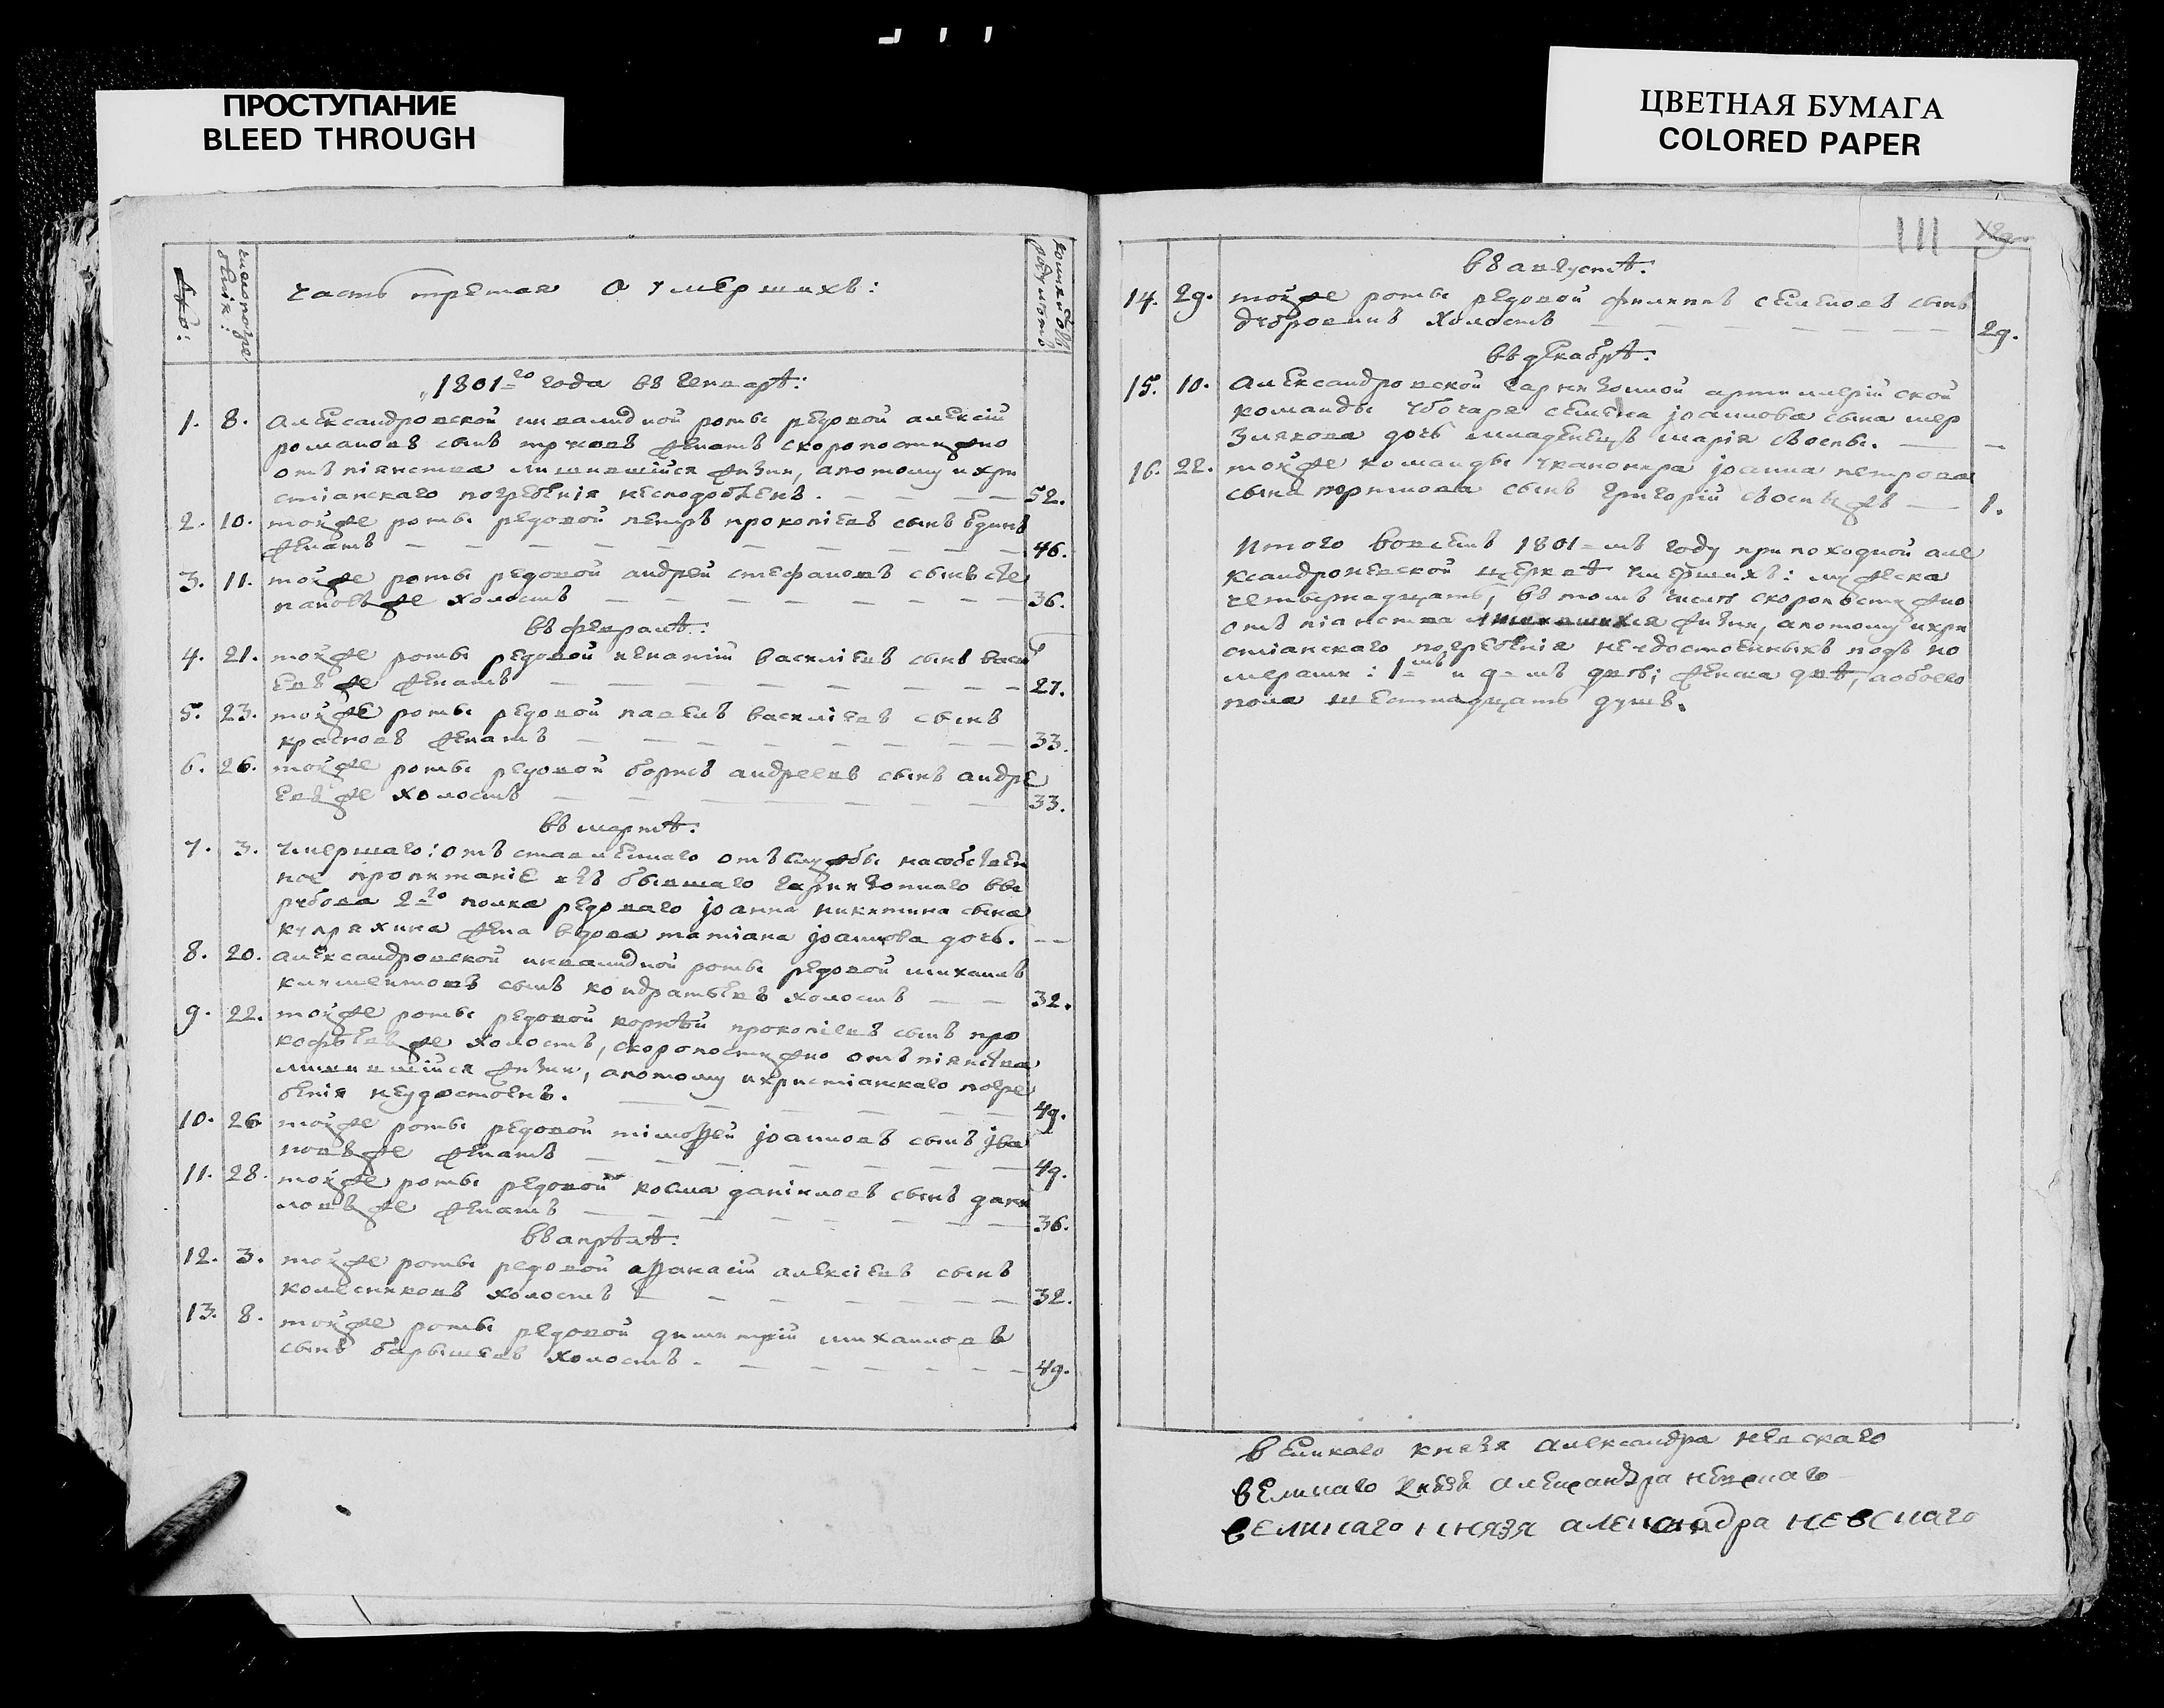 ПРОСТУПАНИЕ
BLEED THROUGH
ЦВЕТНАЯ БУМАГА
COLORED PAPER
число погре
бенія:
часть третая о умершихъ:
1801-го года въ генварѣ:
1. 8. александровской инвалидной роты редовой алексій
романовъ сынъ женатъ скоропостижно
отъ піянства лишившійся жизни, апотому и хри
стіанскаго погребенія несподобленъ. 52.
2. 10. тойже роты редовой петръ прокопіевъ сынъ
женатъ 46.
3. 11. тойже роты редовой андрей стефановъ сынъ сте
пановъже холостъ 36.
въ февралѣ:
4. 21. тойже роты редовой игнатій василіевъ сынъ васил
евъ же женатъ 27.
5. 23. тойже роты редовой павелъ василіевъ сынъ
красновъ женатъ 33.
6. 26. тойже роты редовой борисъ андреевъ сынъ андре
евъ же холостъ 33.
въ мартѣ:
7. 3. умершаго: отъставленнаго отъслужбы насобствен
ное пропитаніе изъ бывшаго гарнизоннаго вы
рубова 2-го полка редоваго іоанна никитина сына
купряхина жена вдова татіана іоаннова дочь.
8. 20. александровской инвалидной роты редовой михаилъ
климентовъ сынъ кондратьевъ холостъ 32.
9. 22. тойже роты редовой корнѣй прокопіевъ сынъ про
кофьевъ же холостъ, скоропостижно отъ піянства
лишившійся жизни, апотому ихристіанскаго погре
бенія неудостоенъ. 49.
10. 26. тойже роты редовой тімоѳей іоанновъ сынъ іва
новъже женатъ 49.
11. 28. тойже роты редовой косма даніиловъ сынъ дани
ловъ же женатъ 36.
въ апрѣлѣ:
12. 3. тойже роты редовой аѳанасій алексіевъ сынъ
колесниковъ холостъ 32.
13. 8. тойже роты редовой димитрій михаиловъ
сынъ барышевъ холостъ. 49.
111
въ августѣ:
14. 29. тойже роты редовой филиппъ семеновъ сынъ
дубровинъ холостъ 29.
въ декабрѣ:
15. 10. александровской гарнизонной артиллерійской
команды убочара семена іоаннова сына мер
злякова дочь младенецъ марія воспы.
16. 22. тойже команды уканонера іоанна петрова
сына сынъ григорій 1.
Итого вовсемъ 1801-мъ году при походной але
ксандроневской церквѣ умершихъ: мужеска
четырнадцать, въ томъ числѣ скоропостижно
отъ піянства лишившихся жизни, апотому ихри
стіанскаго погребенія неудостоенныхъ подъ но
мерами: 1-мъ и 9-мъ двѣ; женска двѣ, аобоего
пола шестнадцать душъ.
великаго князя александра невскаго
великаго князя александра невскаго
великаго князя александра невскаго